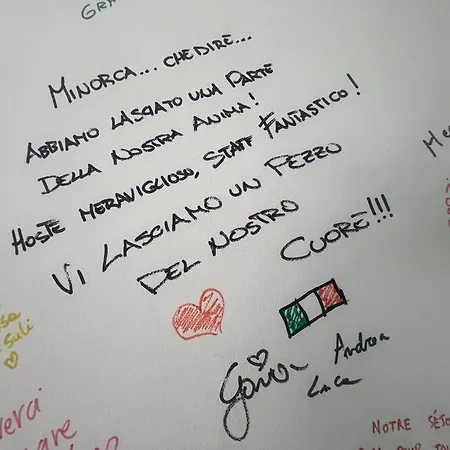 GRA
MINORCA... CHE DIRE...
ABBIAMO LASCIATO UNA PARTE
DELLA NOSTRA ANIMA!
HOSTE MERAVIGLIOSO, STAFF FANTASTICO!
VI LASCIAMO UN PEZZO
DEL NOSTRO
CUORE!!!
Andrea
Luca
suli
NOTRE SÉJO